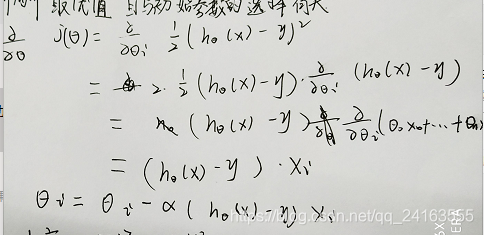 最优值 且与初始参数的选择有关
∂/∂θ J(θ) = ∂/∂θi 1/2 (hθ(x) - y)²
= 2 · 1/2 (hθ(x) - y) · ∂/∂θi (hθ(x) - y)
= (hθ(x) - y) ∂/∂θi (θ0x0 + ... + θn
= (hθ(x) - y) · xi
θi = θi - α (hθ(x) - y) xi
https://blog.csdn.net/qq_24163555